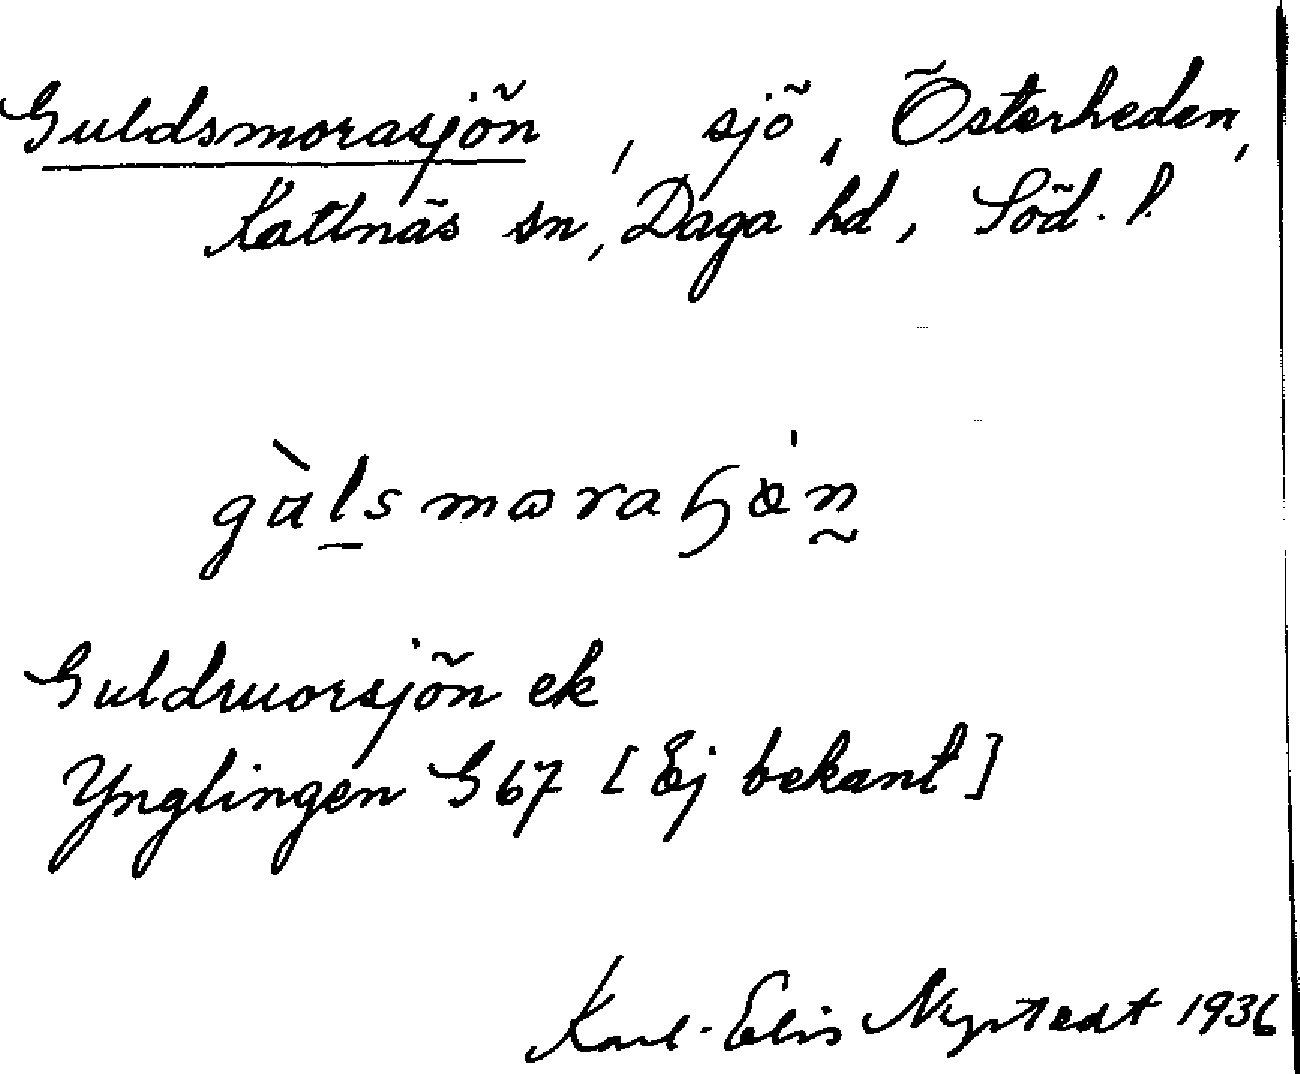 Guldsmorasjön, sjö, Österheden,
Kattnäs sn, Daga hd, Söd. l.
Guldruorsjön ek
Ynglingen G67 [Ej bekant]
Karl-Elis Nystedt 1936